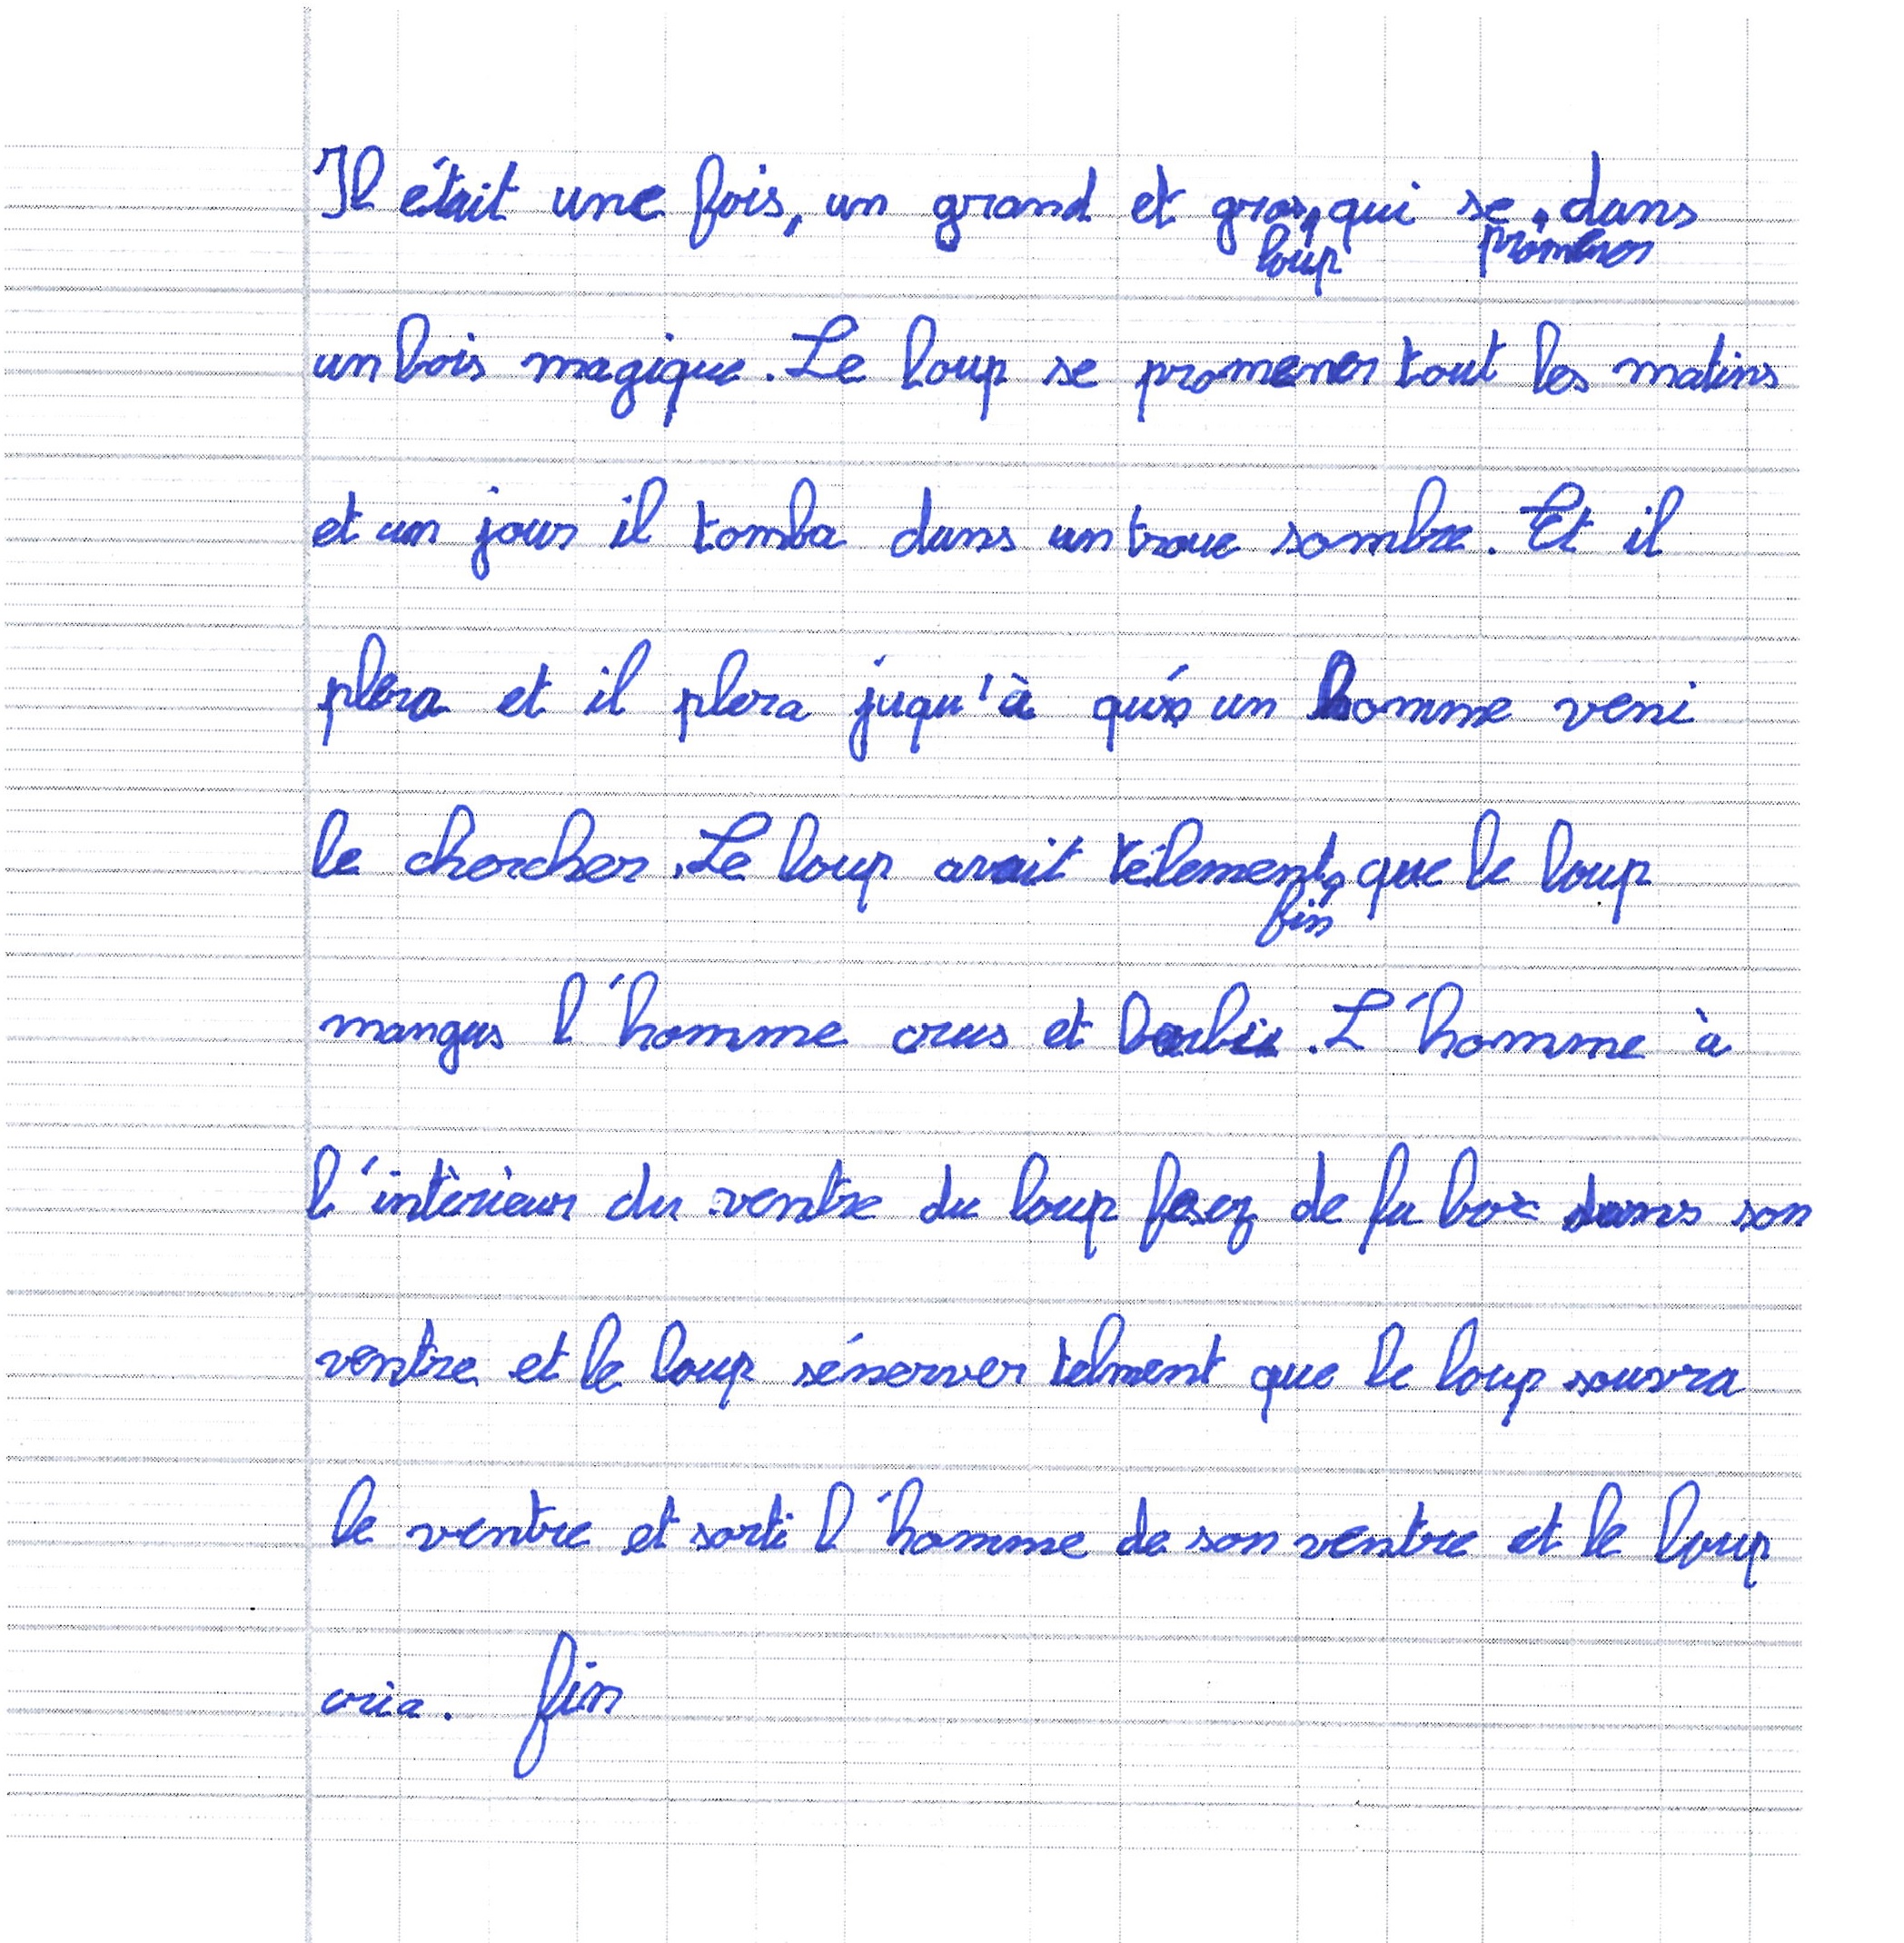 Il était une fois, un grand et gros, qui se, dans
loup promener
un bois magique. Le loup se promener tout les matins
et un jour il tomba dans un troue sombre. Et il
plera et il plera juqu'à qu'a un homme veni
le chercher. Le loup avait telement, que le loup
fin
mangas l'homme crus et barbu. L'homme à
l'intèrieur du ventre du loup fesez de la boxe dans son
ventre et le loup sénerver telment que le loup souvra
le ventre et sorti l'homme de son ventre et le loup
cria. fin